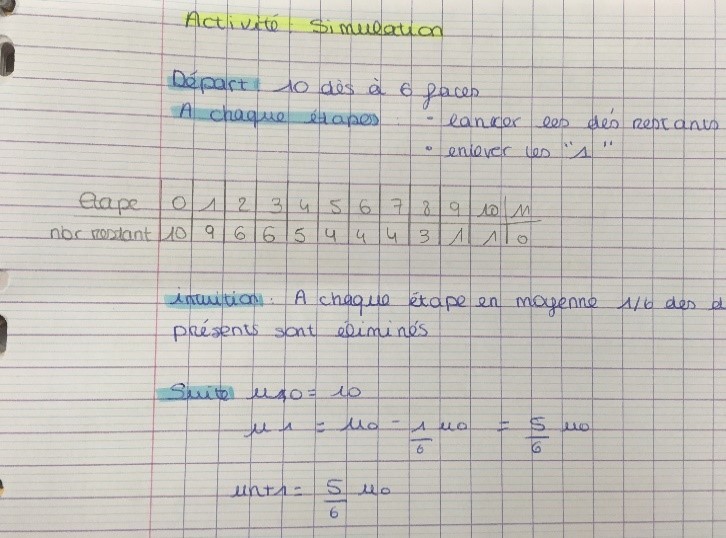 Activité : Simulation
Départ : 10 dés à 6 faces
A chaque étapes : - lancer les dés restants
• enlever les "1"
Etape 0 1 2 3 4 5 6 7 8 9 10 11
nbr restant 10 9 6 6 5 4 4 4 3 1 1 0
intuition : A chaque étape en moyenne 1/6 des d
présents sont éliminés
Suite u0 = 10
u1 = u0 - 1/6 u0 = 5/6 u0
un+1 = 5/6 u0